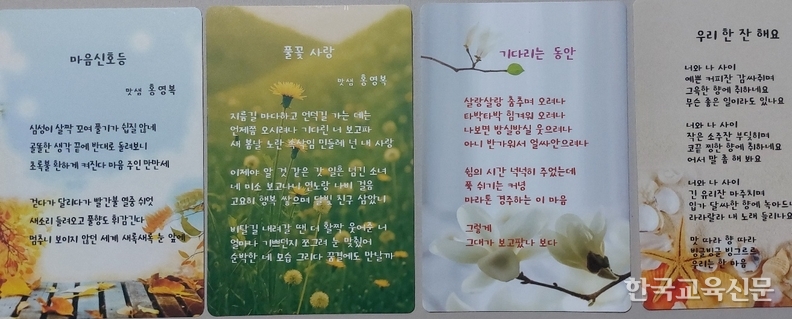 마음신호등
맛샘 홍영복
심성이 살짝 꼬여 풀기가 쉽질 않네
골똘한 생각 끝에 반대로 돌려보니
초록불 환하게 켜진다 마음 주인 만만세
걷다가 달리다가 빨간불 멈춤 쉬엇
새소리 들려오고 풀향도 휘감긴다
멈추니 보이지 않던 세계 새록새록 눈 앞에
풀꽃 사랑
맛샘 홍영복
지름길 마다하고 언덕길 가는 데는
언제쯤 오시려나 기다린 너 보고파
새 봄날 노란 속삭임 민들레 넌 내 사랑
이제야 알 것 같은 갓 일흔 넘긴 소녀
네 미소 보고나니 흰노랑 나비 걸음
고요히 행복 쌓으며 달빛 친구 삼았니
비탈길 내려갈 땐 더 활짝 웃어준 너
얼마나 기쁘던지 쪼그려 눈 맞췄어
순박한 네 모습 그리다 꿈결에도 만날까
기다리는 동안
살랑살랑 춤추며 오려나
타박타박 힘겨워 오려나
나보면 방실방실 웃으려나
아니 반가워서 얼싸안으려나
쉼의 시간 넉넉히 주었는데
푹 쉬기는 커녕
마라톤 경주하는 이 마음
그렇게
그대가 보고팠나 보다
우리 한 잔 해요
너와 나 사이
예쁜 커피잔 감싸쥐며
그윽한 향에 취하네요
무슨 좋은 일이라도 있나요
너와 나 사이
작은 소주잔 부딪히며
코끝 찡한 향에 취하네요
어서 말 좀 해 봐요
너와 나 사이
긴 유리잔 마주치며
입가 달싸한 향에 녹아드니
라라랄라 내 노래 들리나요
맛 따라 향 따라
빙글빙글 빙그르르
우리는 한 마음
한국교육신문